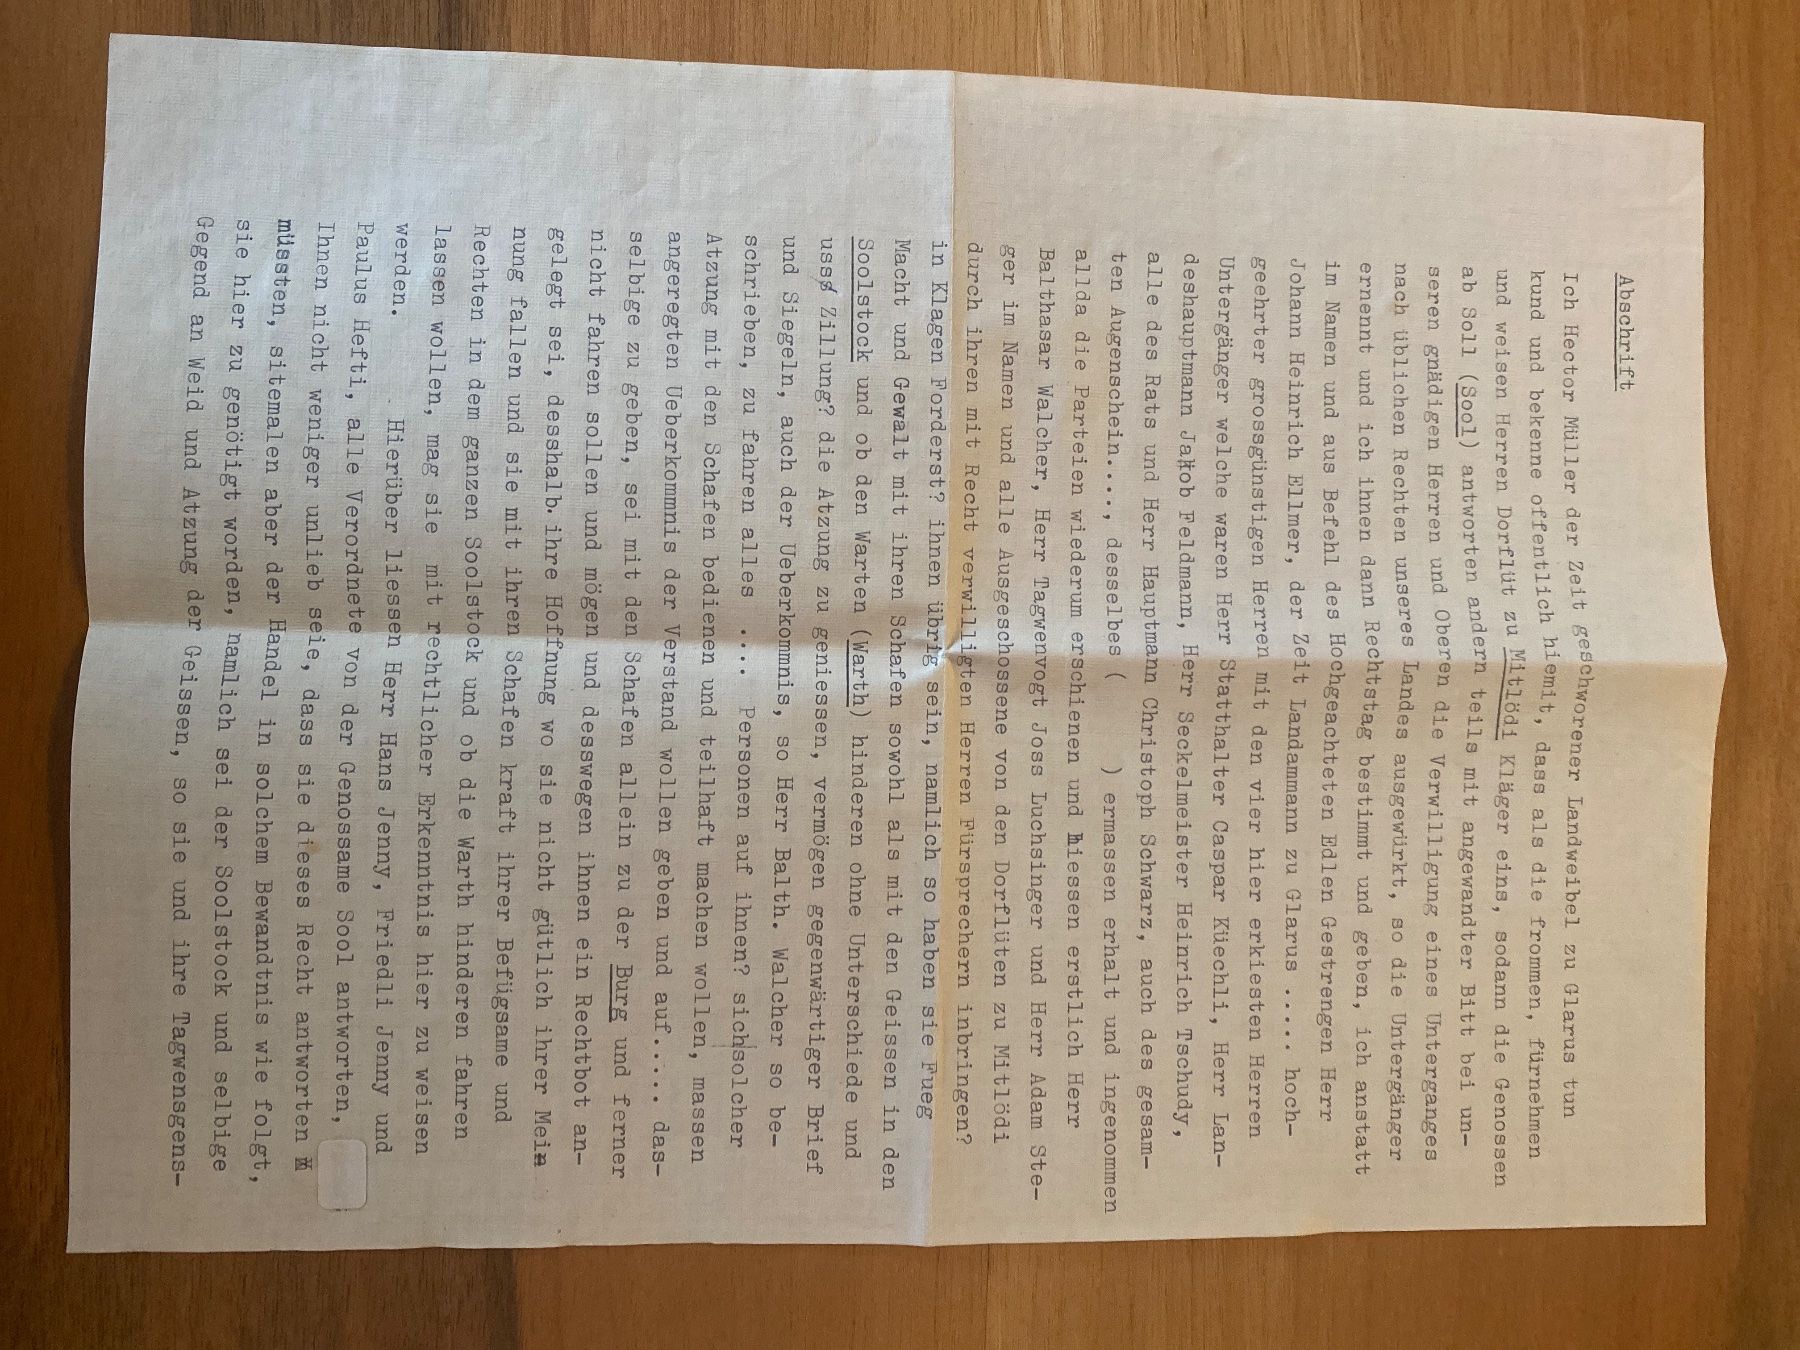 Abschrift
Ich Hector Müller der Zeit geschworener Landweibel zu Glarus tun
kund und bekenne offentlich hiemit, dass als die frommen, fürnehmen
und weisen Herren Dorflüt zu Mitlödi Kläger eins, sodann die Genossen
ab Soll (Sool) antworten andern teils mit angewandter Bitt bei un-
seren gnädigen Herren und Oberen die Verwilligung eines Unterganges
nach üblichen Rechten unseres Landes ausgewürkt, so die Untergänger
ernennt und ich ihnen dann Rechtstag bestimmt und geben, ich anstatt
im Namen und aus Befehl des Hochgeachteten Edlen Gestrengen Herr
Johann Heinrich Ellmer, der Zeit Landammann zu Glarus ..... hoch-
geehrter grossgünstigen Herren mit den vier hier erkiesten Herren
Untergänger welche waren Herr Statthalter Caspar Küechli, Herr Lan-
deshauptmann Jakob Feldmann, Herr Seckelmeister Heinrich Tschudy,
alle des Rats und Herr Hauptmann Christoph Schwarz, auch des gesam-
ten Augenschein...., desselbes (     ) ermassen erhalt und ingenommen
allda die Parteien wiederum erschienen und hiessen erstlich Herr
Balthasar Walcher, Herr Tagwenvogt Joss Luchsinger und Herr Adam Ste-
ger im Namen und alle Ausgeschossene von den Dorflüten zu Mitlödi
durch ihren mit Recht verwilligten Herren Fürsprechern inbringen?
in Klagen Forderst? ihnen übrig sein, namlich so haben sie Fueg
Macht und Gewalt mit ihren Schafen sowohl als mit den Geissen in den
Soolstock und ob den Warten (Warth) hinderen ohne Unterschiede und
uss Zillung? die Atzung zu geniessen, vermögen gegenwärtiger Brief
und Siegeln, auch der Ueberkommnis, so Herr Balth. Walcher so be-
schrieben, zu fahren alles .... Personen auf ihnen? sich solcher
Atzung mit den Schafen bedienen und teilhaft machen wollen, massen
angeregten Ueberkommnis der Verstand wollen geben und auf..... das-
selbige zu geben, sei mit den Schafen allein zu der Burg und ferner
nicht fahren sollen und mögen und desswegen ihnen ein Rechtbot an-
gelegt sei, desshalb.ihre Hoffnung wo sie nicht gütlich ihrer Mein
nung fallen und sie mit ihren Schafen kraft ihrer Befügsame und
Rechten in dem ganzen Soolstock und ob die Warth hinderen fahren
lassen wollen, mag sie  mit rechtlicher Erkenntnis hier zu weisen
werden.     Hierüber liessen Herr Hans Jenny, Friedli Jenny und
Paulus Hefti, alle Verordnete von der Genossame Sool antworten,
Ihnen nicht weniger unlieb seie, dass sie dieses Recht antworten
müssten, sitemalen aber der Handel in solchem Bewandtnis wie folgt,
sie hier zu genötigt worden, namlich sei der Soolstock und selbige
Gegend an Weid und Atzung der Geissen, so sie und ihre Tagwensgens-